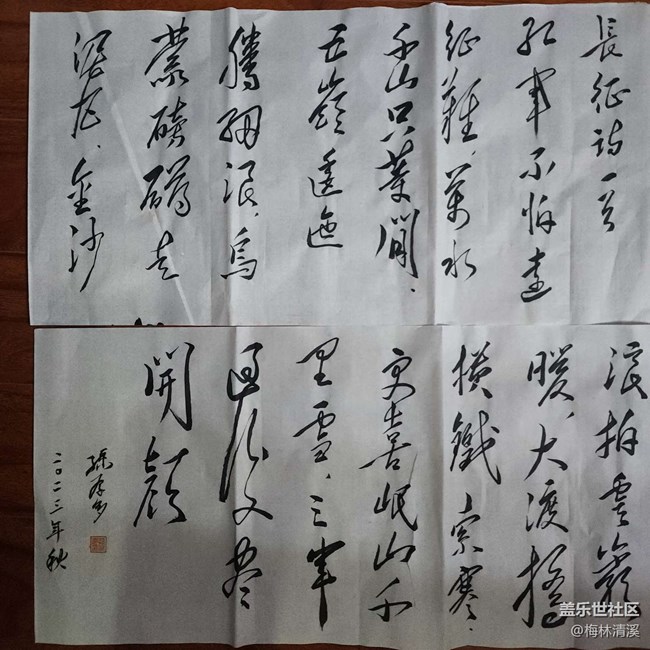 長征詩一首
紅軍不怕遠
征難,萬水
千山只等閒,
五嶺逶迤
騰細浪,烏
蒙磅礴走
泥丸,金沙
浪拍雲崖
暖,大渡橋
橫鐵索寒,
更喜岷山千
里雪,三軍
過後盡
開顏
二〇二三年秋
盖乐世社区
@梅林清溪